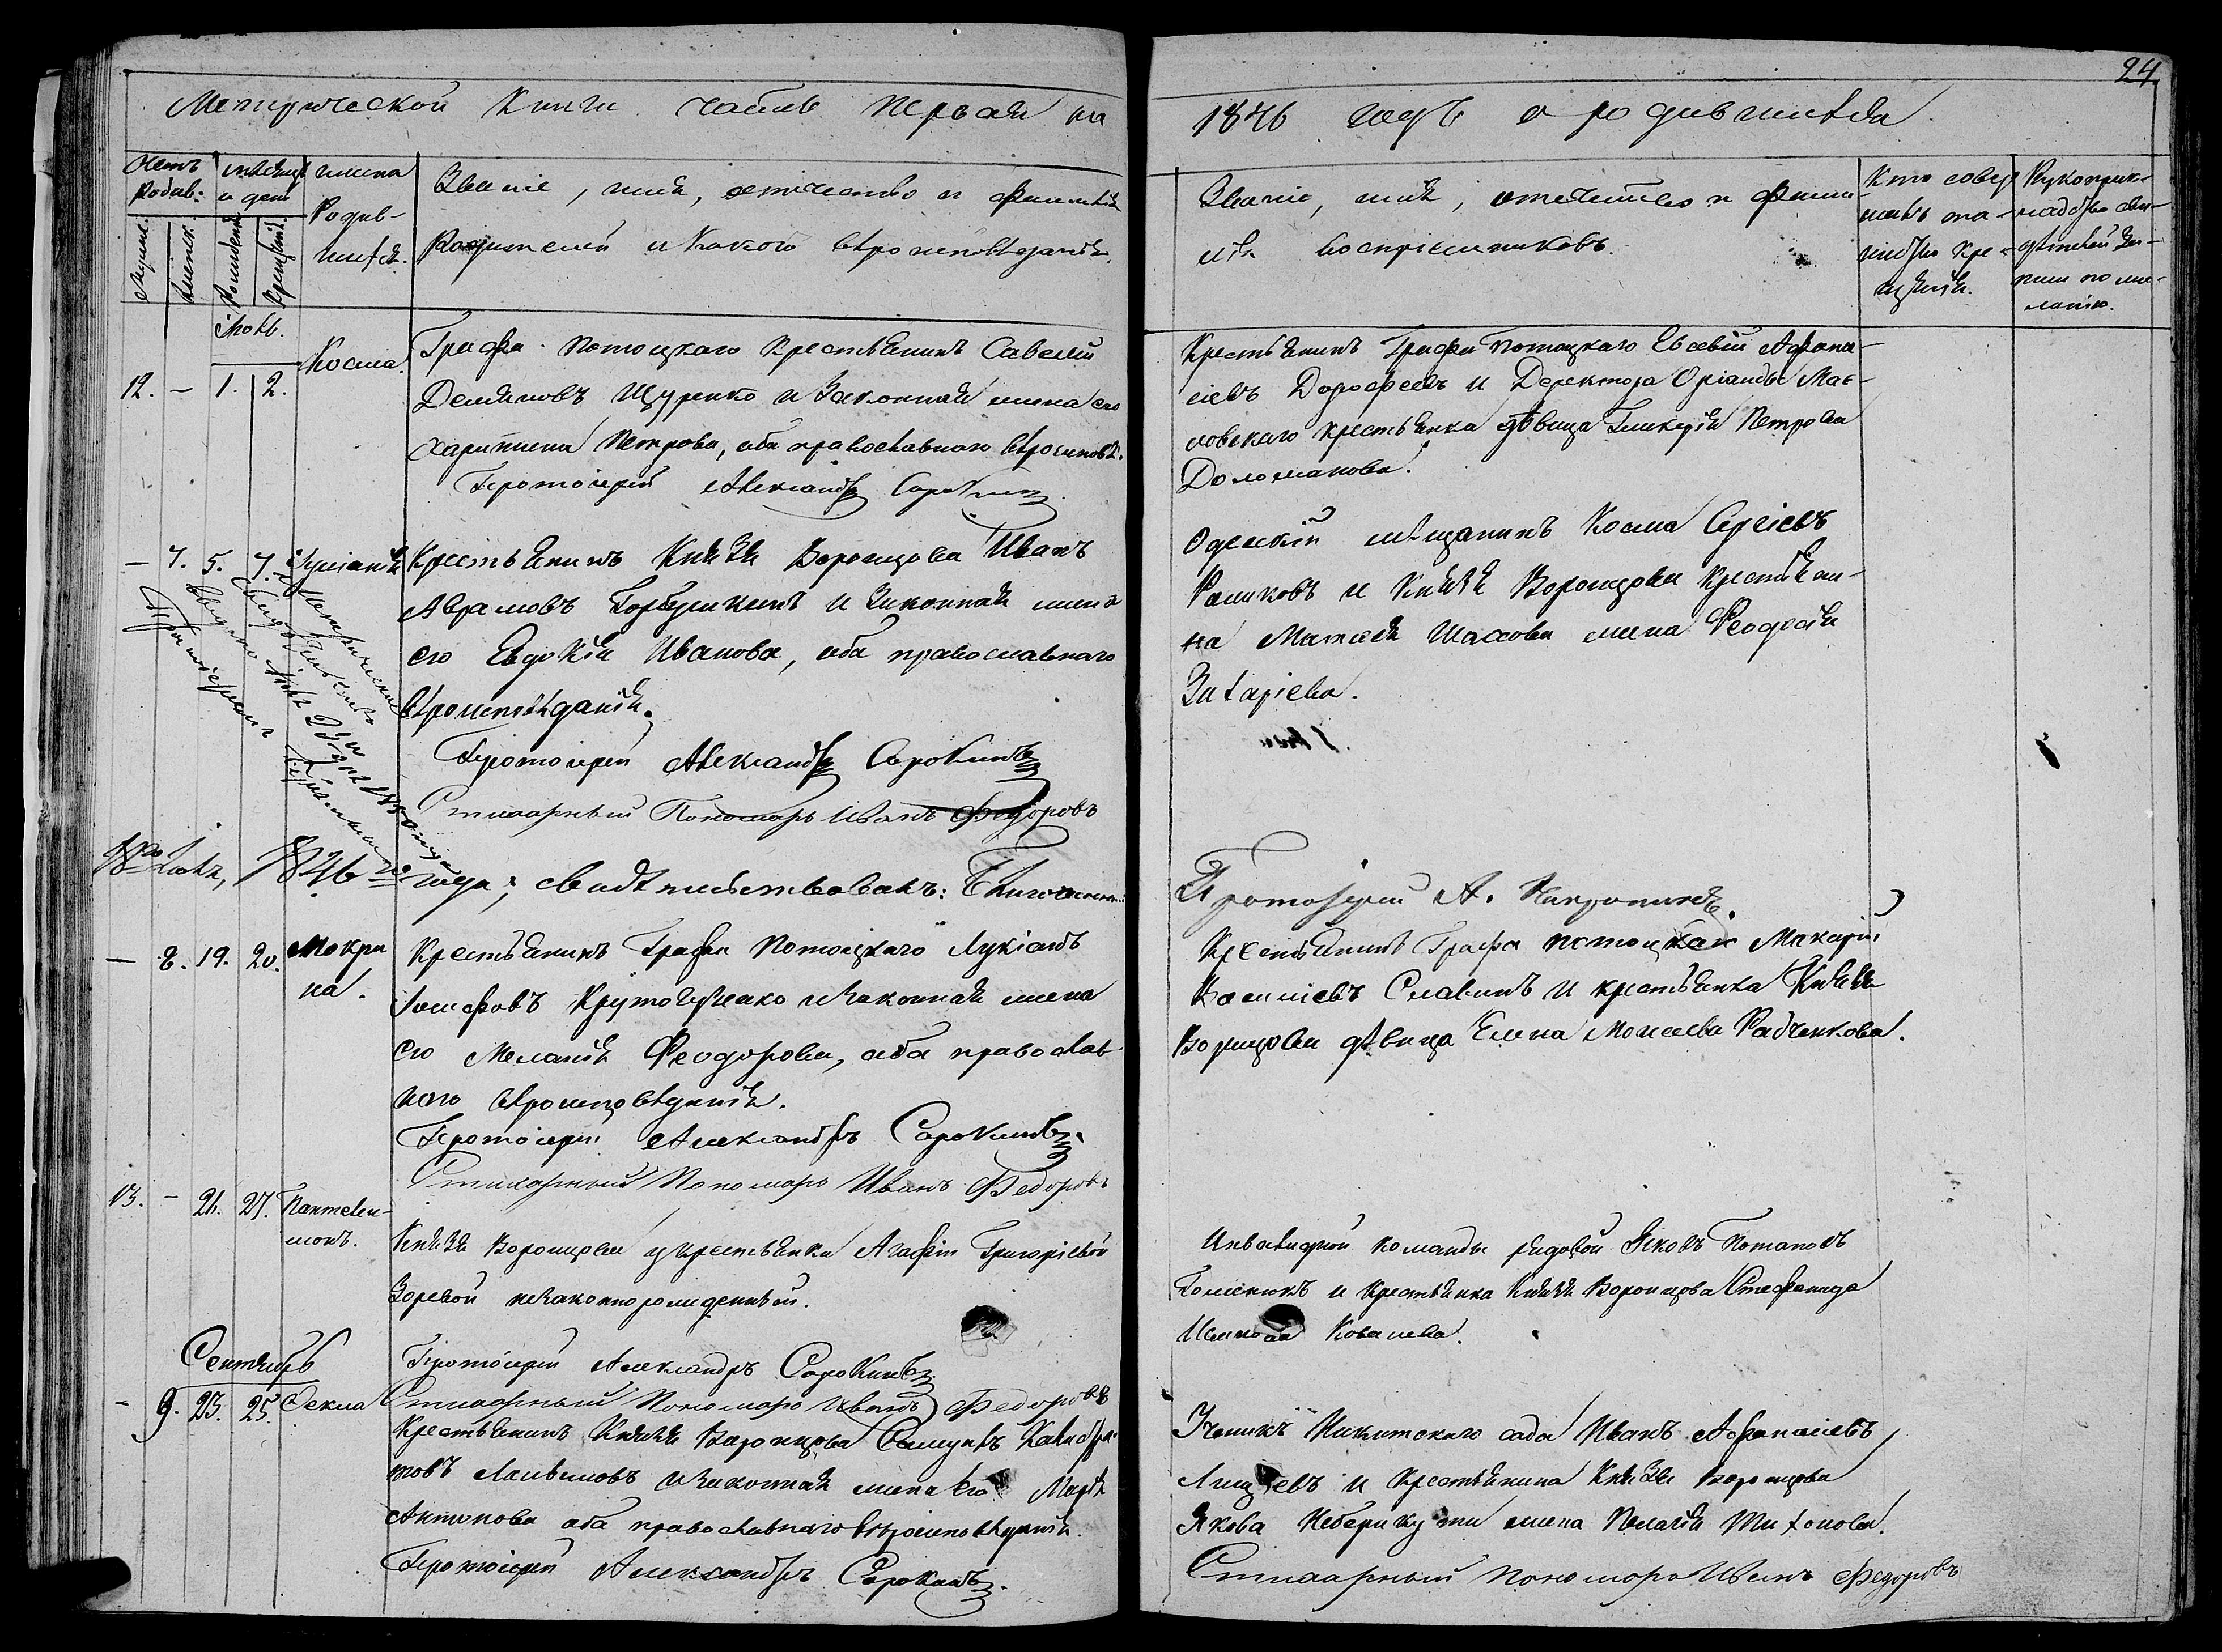 24
Метрической Книги часть первая на
1846 годъ о родившихся
Счетъ родив:
мѣсяцъ и день
имена Родив-
шихся.
Мужеск.
Женск.
Рожденія
Крещенія.
Званіе, имя, отчество и фамилія
Родителей и Какого вѣроисповѣданія.
Званіе, имя, отечество и фами-
лія воспріемниковъ.
Кто совер
шалъ та-
инство кре-
щенія.
Рукоприк-
ладство сви-
дѣтелей за-
писи по же-
ланію.
12. – 1. 2. Косма.
Графа Потоцкаго Крестьянинъ Савелій
Демяновъ Щуренко и Законная жена его
Харитина Петрова, оба православнаго вѣроисповѣ.
Протоіерей Александръ Сорокинъ
Крестьянинъ Графа Потоцкаго Евсевій Афана-
сіевъ Дорофеевъ и Деректора Оріанды Мас-
ловскаго крестьянка дѣвица Гликерія Петрова
Доломанова.
– 7. 5. 7. Іуліанія
Крестьянинъ Князя Воронцова Иванъ
Аврамовъ Горбушкинъ и Законная жена
его Евдокія Иванова, оба православнаго
вѣроисповѣданія.
Протоіерей Александръ Сорокинъ
Стихарный Пономарь Иванъ Федоровъ
Метрическое
Свидѣтельство
выдано
Протоіереемъ
Одесскій мѣщанинъ Косма Сергіевъ
Рашковъ и Князя Воронцова крестьяни-
на Матвея Шахова жена Феодосія
Захаріева.
1846го года; свидѣтельствовалъ: Благочинный
Протоіерей А.
– 8. 19. 20. Макри
на.
Крестьянинъ Графа Потоцкаго Лукіанъ
Іосифовъ Крутогузенко и Законная жена
его Меланія Феодорова, оба православ-
наго вѣроисповѣданія.
Протоіерей Александръ Сорокинъ.
Стихарный Пономарь Иванъ Федоровъ
Крестьянинъ Графа Потоцкаго Макарій
Василіевъ Славинъ и крестьянка Князя
Воронцова дѣвица Елена Моисеева Радченкова.
13. – 26. 27. Пантелеи-
монъ.
Князя Воронцова у крестьянки Агафіи Григоріевой
Зоревой незаконнорожденный.
Протоіерей Александръ Сорокинъ
Стихарный Пономарь Иванъ Федоровъ
Инвалидной команды рядовой Яковъ Потаповъ
и Крестьянка Князя Воронцова Стефанида
Ковалева.
Сентябрь
– 9. 23. 25. Фекла
Крестьянинъ Князя Воронцова Самуилъ Калистра-
товъ и Законная жена его Марія
Антонова оба православнаго вѣроисповѣданія.
Протоіерей Александръ Сорокинъ.
Ученикъ Никитскаго сада Иванъ Афанасіевъ
и Крестьянина Князя Воронцова
Якова жена Пелагія Тихонова.
Стихарный Пономарь Иванъ Федоровъ